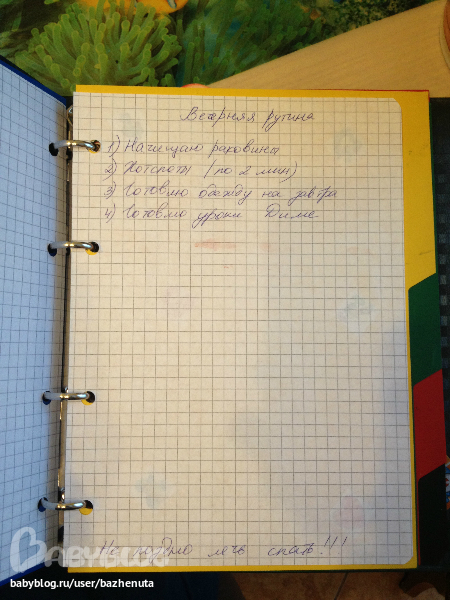 Вечерняя рутина
1) Начищаю раковины
2) Хотспоты (по 2 мин)
3) Готовлю одежду на завтра
4) Готовлю уроки Диме
Не поздно лечь спать!!!
BABYBLOG
babyblog.ru/user/bazhenuta